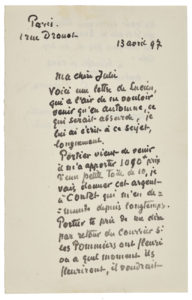 Paris.
1 rue Drouot
13 avril 97
Ma chère Julie
Voici une lettre de Lucien,
qui a l'air de ne vouloir
venir qu'en automne, ce
qui serait absurde, je
lui ai écrit à ce sujet,
longuement.
Portier vient de venir
il m'a apporté 1000
d'une petite toile de 10, je
vais donner cet argent
à Contet qui m'en de-
mande depuis longtemps.
Portier te prie de me dire
par retour du courrier si
les Pommiers ont fleuri
ou a quel moment ils
fleuriront, il voudrait